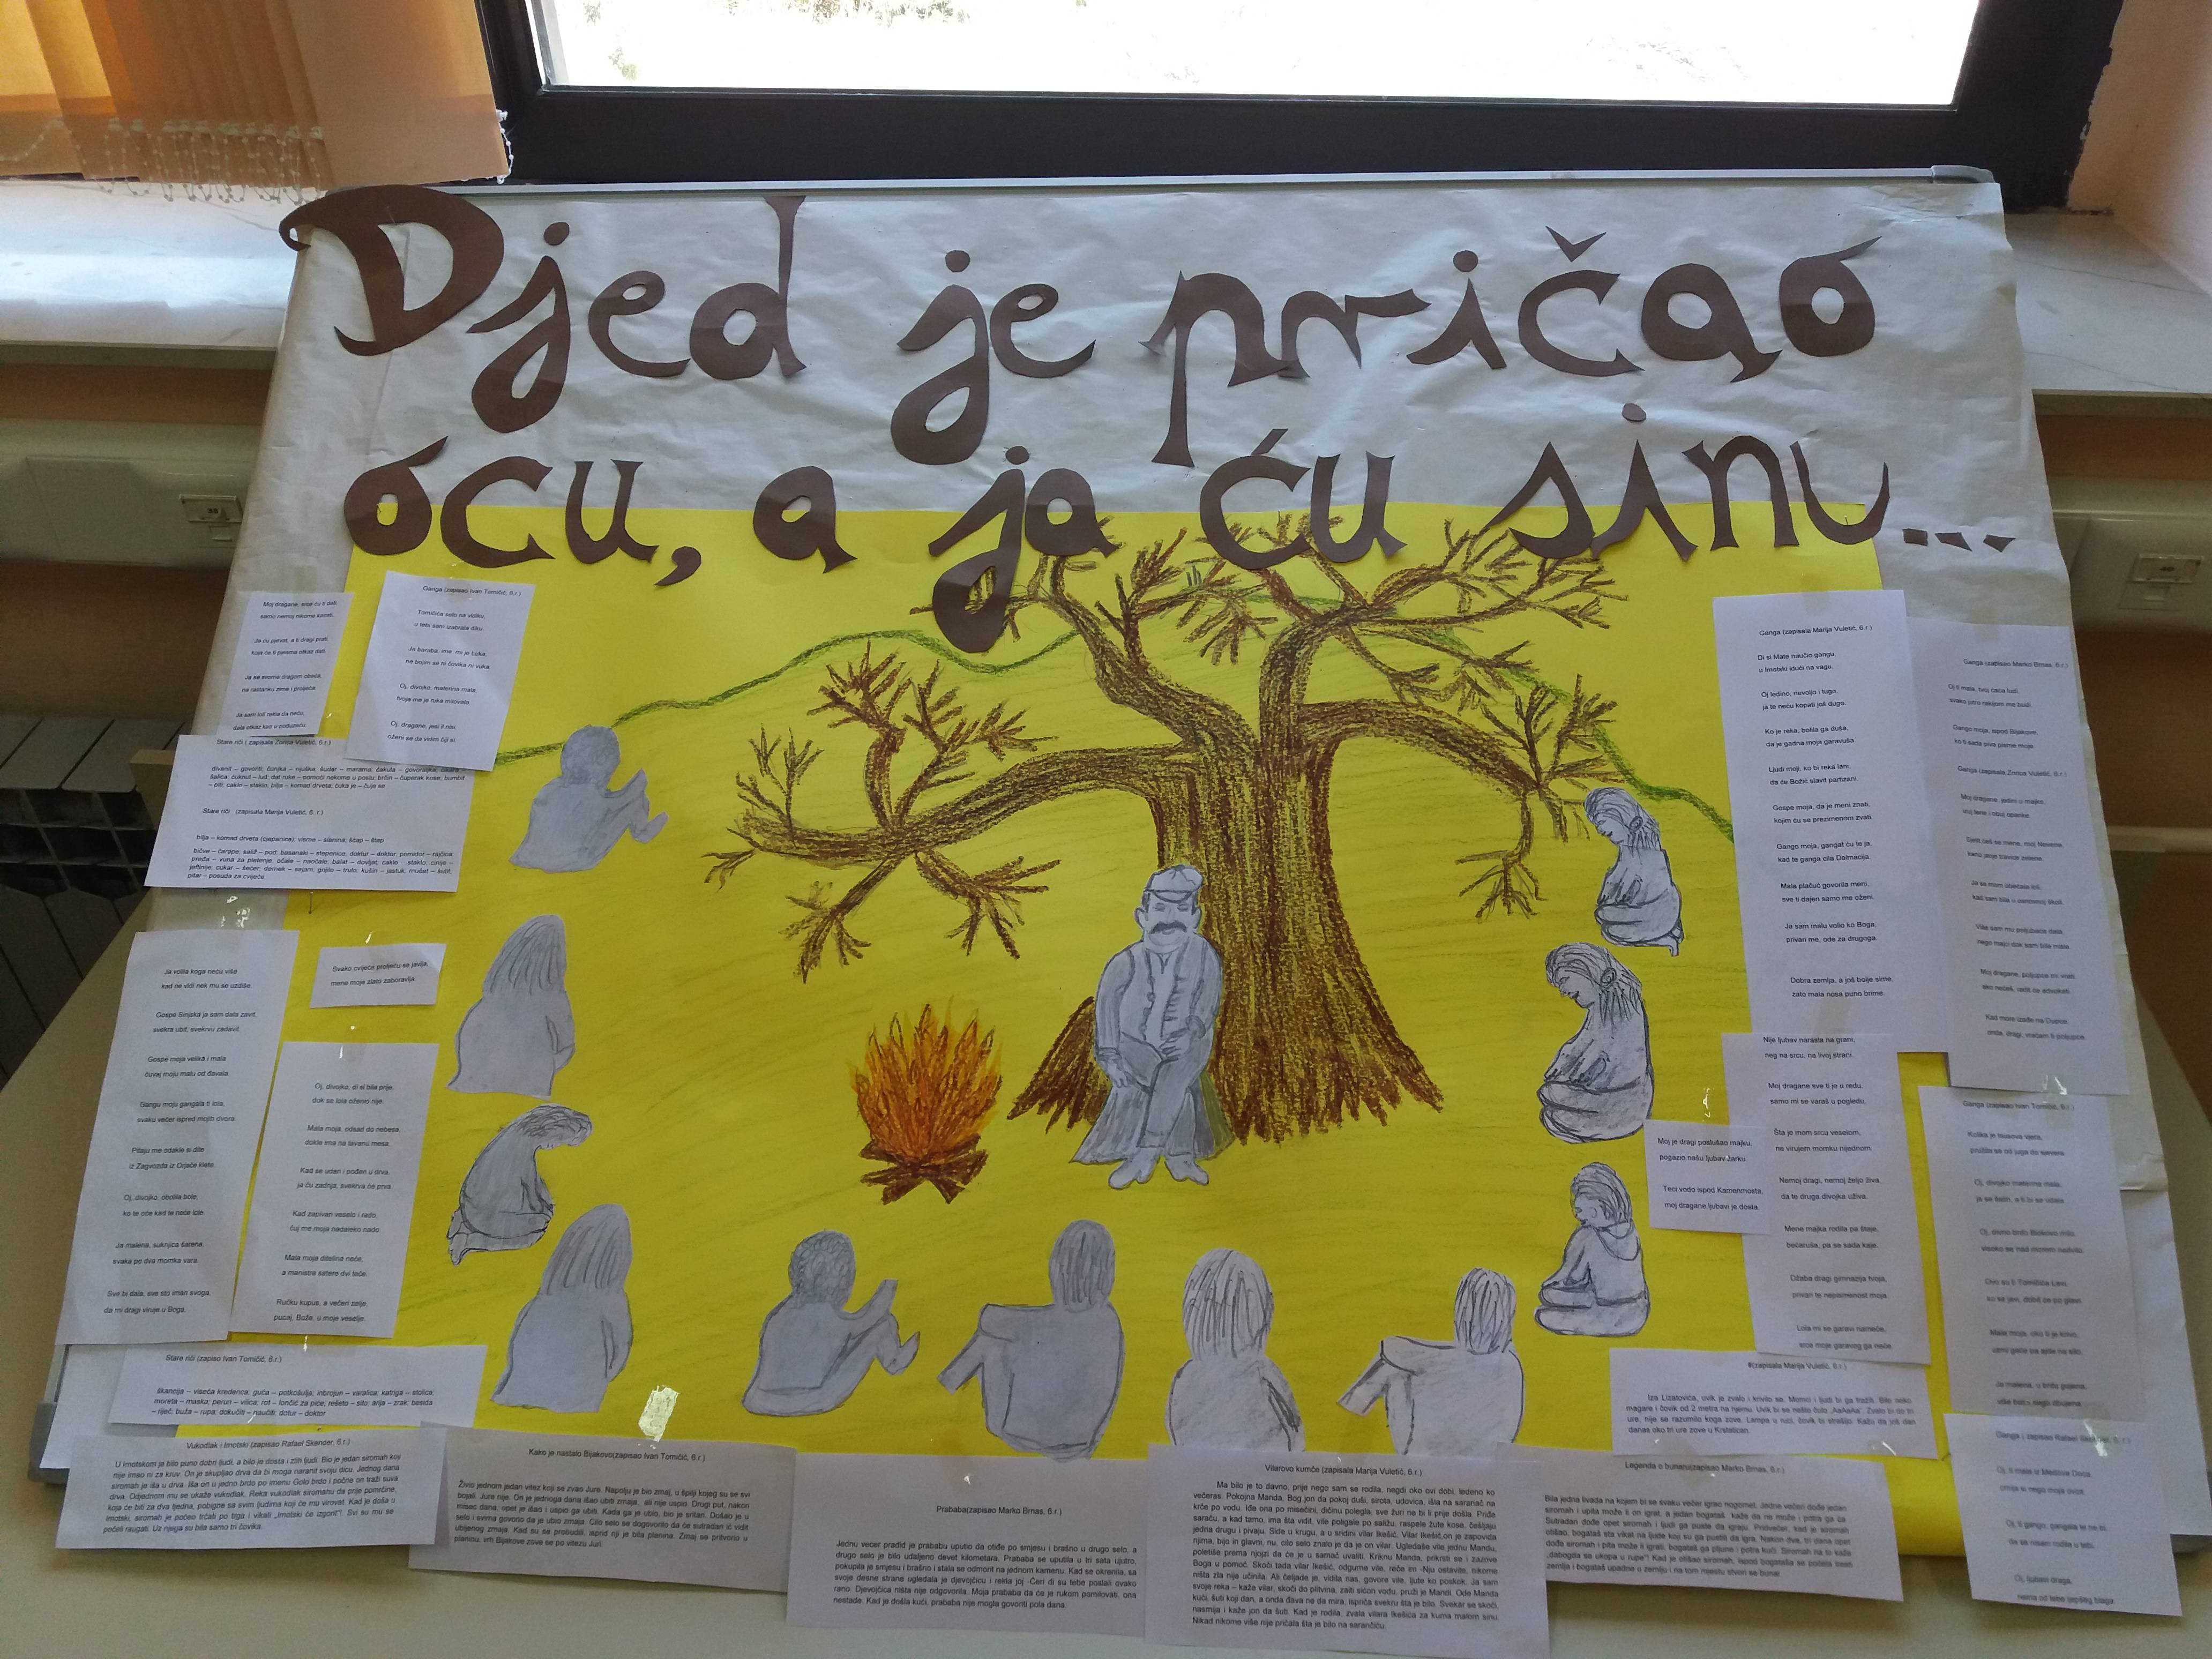 Djed je pričao
ocu, a ja ću sinu...
Moj dragane, srce ću ti dati,
samo nemoj nikome kazati.
Ja ću pjevat, a ti dragi prati,
koja će ti pjesma otkaz dati.
Ja se svome dragom obeća,
na rastanku zime i proljeća.
Ja sam loli rekla da neću,
dala otkaz kao u poduzeću.
Ganga (zapisao Ivan Tomičić, 6.r.)
Tomičića selo na vidiku,
u tebi sam izabrala diku.
Ja baraba, ime mi je Luka,
ne bojim se ni čovika ni vuka.
Oj, divojko, materina mala,
tvoja me je ruka milovala.
Oj, dragane, jesi li nosi,
oženi se da vidim čiji si.
Stare riči ( zapisala Zorica Vuletić, 6.r.)
divanit – govoriti; čunjka – njuška; šudar – marama; čakula – govorljivka;
šalica; ćuknut – lud; dat ruke – pomoći nekome u poslu; brčin – čuperak kose; bumbit
– piti; caklo – staklo; bilja – komad drveta; čuka je – čuje se
Stare riči (zapisala Marija Vuletić, 6. r.)
bilja – komad drveta (cjepanica); visme – slanina; šćap – štap
bičve – čarape; saliž – pod; basanaki – stepenice; doktur – doktor; pomidor – rajčica;
pređa – vuna za pletenje; očale – naočale; balat – dovijat; caklo – staklo; cinije –
jeftinije; cukar – šećer; dernek – sajam; grijilo – truto; kušin – jastuk; mučat – šutit;
pitar – posuda za cvijeće
Ja volila koga neću više
kad ne vidi nek mu se uzdiše.
Gospe Sinjska ja sam dala zavit,
svekra ubit, svekrvu zadavit.
Gospe moja velika i mala
čuvaj moju malu od đavala.
Gangu moju gangala ti lola,
svaku večer ispred mojih dvora.
Pitaju me odakle si dite
iz Zagvozda iz Orjače klete.
Oj, divojko, obolila bole,
ko te oće kad te neće lole.
Ja malena, suknjica šarena,
svaka po dva momka vara.
Sve bi dala, sve sto iman svoga
da mi dragi viruje u Boga.
Svako cvijeće proljeću se javlja,
mene moje zlato zaboravlja.
Oj, divojko, di si bila prije,
dok se lola oženio nije.
Mala moja, odsad do nebesa,
dokle ima na tavanu mesa.
Kad se udan i pođen u drva,
ja ću zadnja, svekrva će prva.
Kad zapivan veselo i rado,
čuj me moja nadaleko nado.
Mala moja ditelina neće,
a manistre satere dvi teče.
Ručku kupus, a večeri zelje,
pucaj, Bože, u moje veselje.
Stare riči (zapisao Ivan Tomičić, 6.r.)
škancija – viseća kredenca; guća – potkošulja; inbrojun – varalica; katriga – stolica;
moreta – maska; perun – vilica; rot – lončić za piće, rešeto – sito; arija – zrak; besida
– riječ; buža – rupa; dokučiti – naučiti; dotur – doktor
Ganga (zapisala Marija Vuletić, 6.r.)
Di si Mate naučio gangu,
u Imotski idući na vagu.
Oj ledino, nevoljo i tugo,
ja te neću kopati još dugo.
Ko je reka, bolila ga duša,
da je gadna moja garavuša.
Ljudi moji, ko bi reka lani,
da će Božić slavit partizani.
Gospe moja, da je meni znati,
kojim ću se prezimenom zvati.
Gango moja, gangat ću te ja,
kad te ganga cila Dalmacija.
Mala plačuć govorila meni,
sve ti dajen samo me oženi.
Ja sam malu volio ko Boga,
privari me, ode za drugoga.
Dobra zemlja, a još bolje sime,
zato mala nosa puno brime.
Nije ljubav narasla na grani,
neg na srcu, na livoj strani.
Moj dragane sve ti je u redu,
samo mi se varaš u pogledu.
Šta je mom srcu veselom,
ne virujem momku nijednom.
Nemoj dragi, nemoj željo živa,
da te druga divojka uživa.
Mene majka rodila pa šteje,
bećaruša, pa se sada kaje.
Džaba dragi gimnazija tvoja,
privari te nepismenost moja.
Lola mi se garavi nameće,
srce moje garavog ga neće.
Moj je dragi poslušao majku,
pogazio našu ljubav žarku.
Teci vodo ispod Kamenmosta,
moj dragane ljubavi je dosta.
Ganga (zapisao Marko Brnas, 6.r.)
Oj ti mala, tvoj ćaća ludi,
svako jutro rakijom me budi.
Gango moja, ispod Bijakove,
Ganga (zapisala Zorica Vuletić, 6.r.)
Moj dragane, jedini u majke,
Ja se mom obećala loli,
kad sam bila u osnovnoj školi.
Više sam mu poljubaca dala,
nego majci dok sam bila mala.
Moj dragane, poljupce mi vrati,
Ganga (zapisao Ivan Tomičić, 6.r.)
Kolika je Isusova vjera,
pružila se od juga do sjevera.
Oj, divojko materina mala,
Oj, slavno brdo Biokovo milo,
visoko se nad morem nadvilo.
Ovo su ti Tomičića Lavi,
Ganga ( zapisao Rafael Skender, 6.r.)
Oj, ti mala iz Medova Doca,
Oj, ti gango, gangala te ne bi,
da se nisan rodila u tebi.
Oj, ljubavi draga,
nema od tebe ljepšeg blaga.
#(zapisala Marija Vuletić, 6.r.)
Iza Lizatovića, uvik je zvalo i krivilo se. Momci i ljudi bi ga tražili. Bilo neko
magare i čovik od 2 metra na njemu. Uvik bi se nešto čulo „AaAaAa“. Zvalo bi do tri
ure, nije se razumilo koga zove. Lampa u ruci, čovik bi strašijo. Kažu da još dan
danas oko tri ure zove u Krstatican.
Vukodlak i Imotski (zapisao Rafael Skender, 6.r.)
U Imotskom je bilo puno dobri ljudi, a bilo je dosta i zlih ljudi. Bio je jedan siromah koji
nije imao ni za kruv. On je skupljao drva da bi moga naranit svoju dicu. Jednog dana
siromah je iša u drva. Iša on u jedno brdo po imenu Golo brdo i počne on traži suva
drva. Odjednom mu se ukaže vukodlak. Reka vukodlak siromahu da prije pomrčine,
koja će biti za dva tjedna, pobigne sa svim ljudima koji će mu virovat. Kad je doša u
Imotski, siromah je počeo trčati po trgu i vikati „Imotski će izgorit“!. Svi su mu se
počeli raugati. Uz njega su bila samo tri čovika.
Kako je nastalo Bijakovo(zapisao Ivan Tomičić, 6.r.)
Živio jednom jedan vitez koji se zvao Jure. Napolju je bio zmaj, u špilji kojeg su se svi
bojali. Jure nije. On je jednoga dana išao ubiti zmaja, ali nije uspio. Drugi put, nakon
misec dana, opet je išao i uspio ga ubiti. Kada ga je ubio, bio je sritan. Došao je u
selo i svima govorio da je ubio zmaja. Cilo selo se dogovorilo da će sutradan ić vidit
ubijenog zmaja. Kad su se probudili, isprid nji je bila planina. Zmaj se pritvorio u
planinu. vrh Bijakove zove se po vitezu Juri.
Prababa(zapisao Marko Brnas, 6.r.)
Jednu vecer pradid je prababu uputio da otiđe po smjesu i brašno u drugo selo, a
drugo selo je bilo udaljeno devet kilometara. Prababa se uputila u tri sata ujutro,
pokupila je smjesu i brašno i stala se odmont na jednom kamenu. Kad se okrenila, sa
svoje desne strane ugledala je djevojčicu i rekla joj -Ćeri di su tebe poslali ovako
rano. Djevojčica ništa nije odgovorila. Moja prababa da će je rukom pomilovati, ona
nestade. Kad je došla kući, prababa nije mogla govoriti pola dana.
Vilarovo kumče (zapisala Marija Vuletić, 6.r.)
Ma bilo je to davno, prije nego sam se rodila, negdi oko ovi dobi, ledeno ko
večeras. Pokojna Manda, Bog jon da pokoj duši, sirota, udovica, išla na saranač na
krče po vodu. Iđe ona po misečini, dičinu polegla, sve žuri ne bi li prije došla. Priđe
saraču, a kad tamo, ima šta vidit, vile poligale po saližu, raspele žute kose, češljaju
jedna drugu i pivaju. Side u krugu, a u sridini vilar Ikešić. Vilar Ikešić,on je zapovida
njima, bijo in glavni, nu, cilo selo znalo je da je on vilar. Ugledaše vile jednu Mandu,
poletiše prema njojzi da će je u samač uvaliti. Kriknu Manda, prikrsti se i zazive
Boga u pomoć. Skoči tada vilar Ikešić, odgurne vile, reče im -Nju ostavite, nikome
ništa zla nije učinila. Ali čeljade je, vidila nas, govore vile, ljute ko poskok. Ja sam
svoje reka – kaže vilar, skoči do plitvina, zaiti sićon vodu, pruži je Mandi. Ode Manda
kući, šuti koji dan, a onda đava ne da mira, ispriča svekru šta je bilo. Svekar se skoči,
nasmija i kaže jon da šuti. Kad je rodila, zvala vilara Ikešića za kuma malom sinu.
Nikad nikome više nije pričala šta je bilo na sarančiću.
Legenda o bunaru(zapisao Marko Brnas, 6.r.)
Bila jedna livada na kojem bi se svaku večer igrao nogomet. Jedne večeri dođe jedan
siromah i upita može li on igrat, a jedan bogataš kaže da ne može i potira ga ća.
Sutradan dođe opet siromah i ljudi ga puste da igraju. Pridvečer, kad je siromah
otišao, bogataš sta vikat na ljude koji su ga pustili da igra. Nakon dva, tri dana opet
dođe siromah i pita može li igrati, bogataš ga pljune i potira kući. Siromah na to kaže
„dabogda se ukopa u rupe“! Kad je otišao siromah, ispod bogataša se počela tresti
zemlja i bogataš upadne u zemlju i na tom mjestu stvori se bunar.